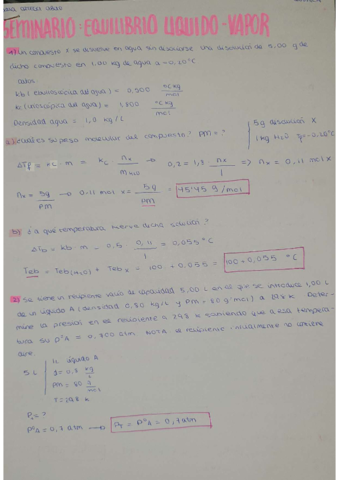 SEMINARIO: EQUILIBRIO LIQUIDO-VAPOR
Un compuesto X se disuelve en agua sin disociarse. Una disolución de 5,00 g de
dicho compuesto en 1,00 kg de agua
Datos:
Kb (ebulloscópica del agua) = 0,500 ºC kg / mol
Kc (crioscópica del agua) = 1,800 ºC kg / mol
Densidad agua = 1,0 kg/L
¿Cuál es su peso molecular del compuesto? PM = ?
5g disolución X
1 kg H2O
m = Kc nx / → 0,2 = 1,8 nx / 1 => nx = 0,11 mol x
nx = 5g / PM → 0,11 mol x = 5g / PM = 45'45 g/mol
¿a qué temperatura hierve dicha solución?
ΔTeb = Kb m = 0,5 0,11 / 1 = 0,055 ºC
Teb = Teb(H2O) + Teb x = 100 + 0,055 = 100,055 ºC
Se tiene un recipiente vacío de capacidad 5,00 L en el que se introduce 1,00 L
de un líquido A (densidad 0,80 kg/L y PM = 80 g/mol) a 298 K. Deter-
mine la presión en el recipiente a 298 K sabiendo que a esa tempera-
tura su PºA = 0,700 atm. NOTA: el recipiente inicialmente no contiene
aire
5 L
1 L líquido A
= 0,8 kg / L
PM = 80 g / mol
T = 298 K
PT = ?
PºA = 0,7 atm → PT = PºA = 0,7 atm